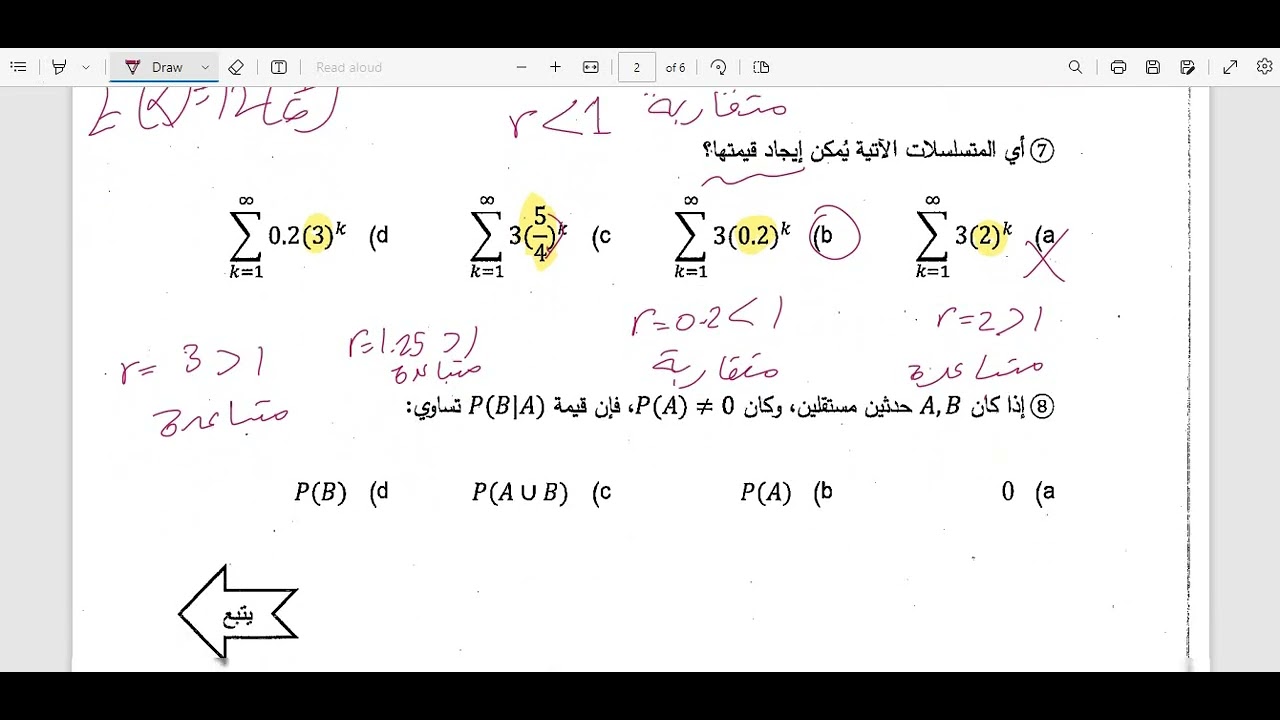 Draw
Read aloud
2 of 6
r < 1 متقاربة
⑦ أي المتسلسلات الآتية يُمكن إيجاد قيمتها؟
a) ∑_{k=1}^{∞} 3(2)^k b) ∑_{k=1}^{∞} 3(0.2)^k c) ∑_{k=1}^{∞} 3(5/4)^k d) ∑_{k=1}^{∞} 0.2(3)^k
r=2>1 r=0.2<1 r=1.25>1 r= 3>1
متباعدة متقاربة متباعدة متباعدة
⑧ إذا كان A, B حدثين مستقلين، وكان P(A) ≠ 0، فإن قيمة P(B|A) تساوي:
a) 0 b) P(A) c) P(A ∪ B) d) P(B)
يتبع